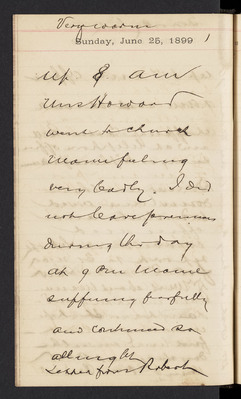 Very warm
Sunday, June 25, 1899
up 8 am
Mrs Howard
went to church
Mame feeling
very badly. I did
not leave premises
during the day
at 9 PM Mame
suffering fearfully
and continued so
all night
Letter from Robert